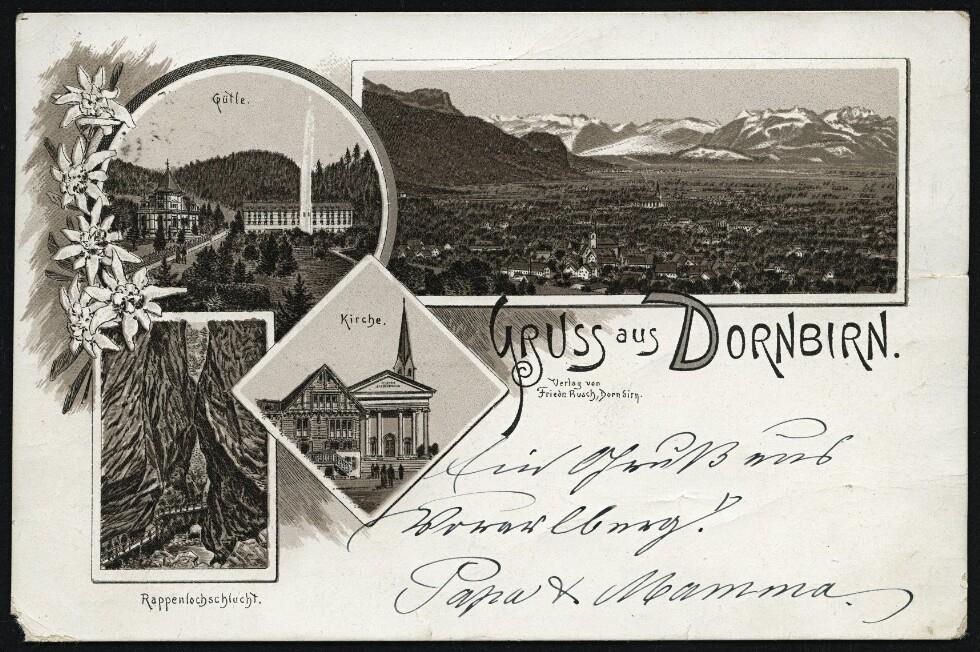 Gütle.
Kirche.
GRUSS aus DORNBIRN.
Verlag von
Friedr. Rusch, Dornbirn.
Ein Gruß aus
Vorarlberg!
Papa & Mamma.
Rappenlochschlucht.